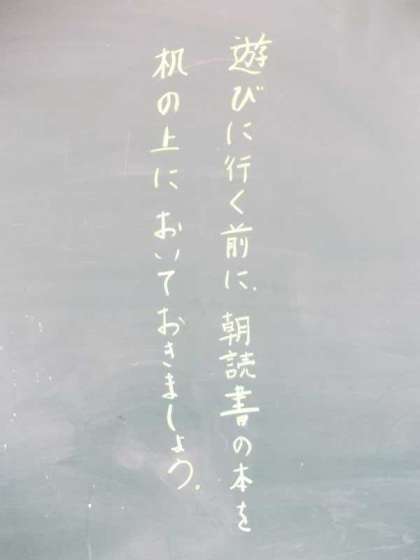 遊びに行く前に、朝読書の本を
机の上においておきましょう。